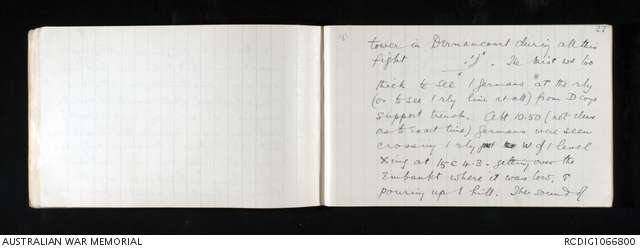 27
tower in Dernancourt during all this
fight . The mist was too
thick to see / Germans at the rly
(or to see / rly line at all) from D Coys
support trench. Abt 10.50 (not clear
as to exact time) Germans were seen
crossing / rly W of / level
Xing at 15 C 4.3. getting over the
Embankt where it was low, &
pouring up / hill. The sound of
AUSTRALIAN WAR MEMORIAL
RCDIG1066800